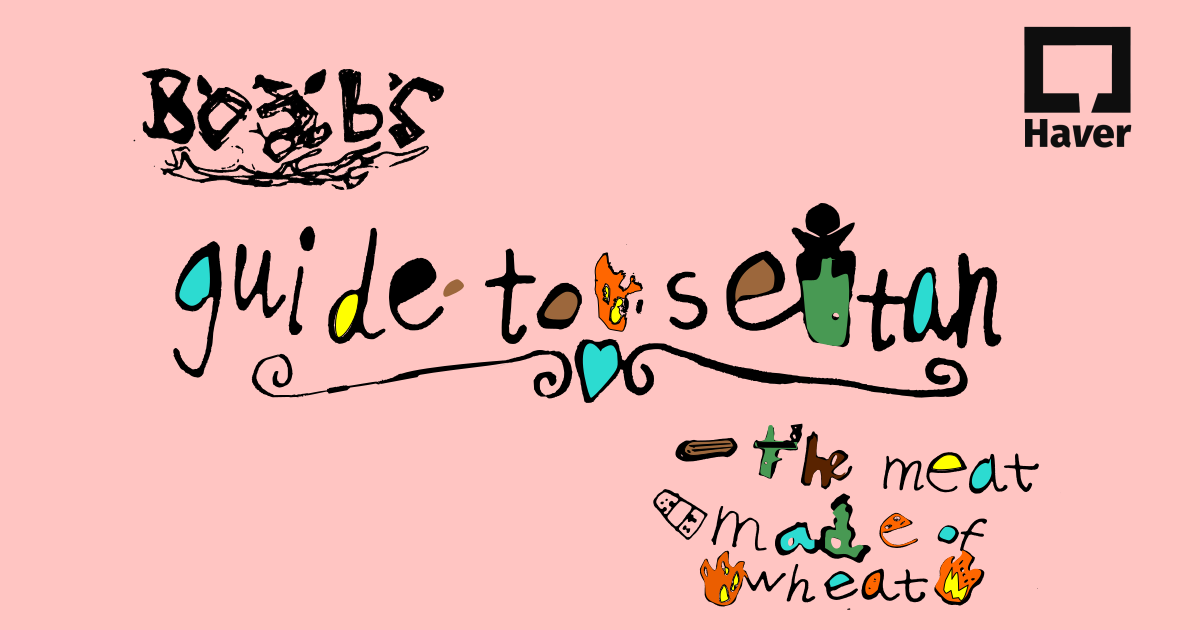 Haver
guide to seitan
- the meat
made of
wheat